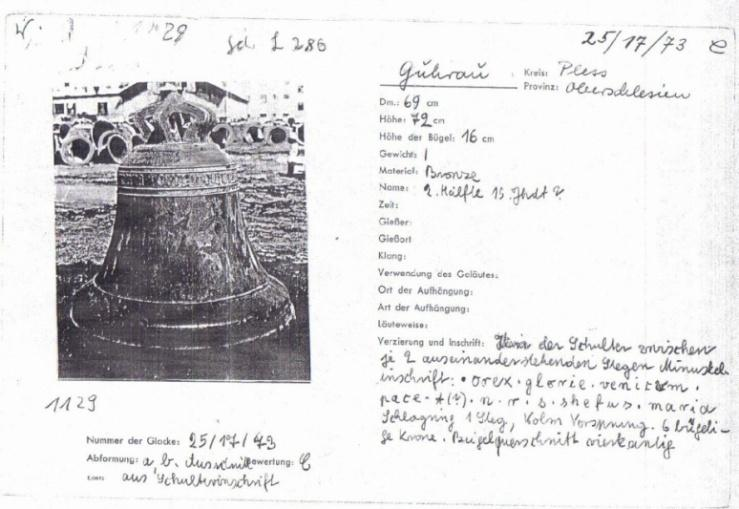 1129
gd. L 286
25/17/73 C
Guhrau
Kreis: Pless
Provinz: Oberschlesien
Dm.: 69 cm
Höhe: 72 cm
Höhe der Bügel: 16 cm
Gewicht: /
Material: Bronze
Name: 2. Hälfte 15. Jhdt ?
Zeit:
Gießer:
Gießort
Klang:
Verwendung des Geläutes:
Ort der Aufhängung:
Art der Aufhängung:
Läuteweise:
Verzierung und Inschrift: der Schulter zwischen
je 2 auseinanderstehenden Stegen Minuskel
inschrift: • orex • glorie • venit •
pace • n • r • s • shefus • maria
Schlagring 1 Steg, Vorsprung. 6 bügeli-
ge Krone. Bügelquerschnitt vierkantig
1129
Nummer der Glocke: 25/17/73
Abformung: a b. Ausschnitt Bewertung: C
aus Schulterinschrift